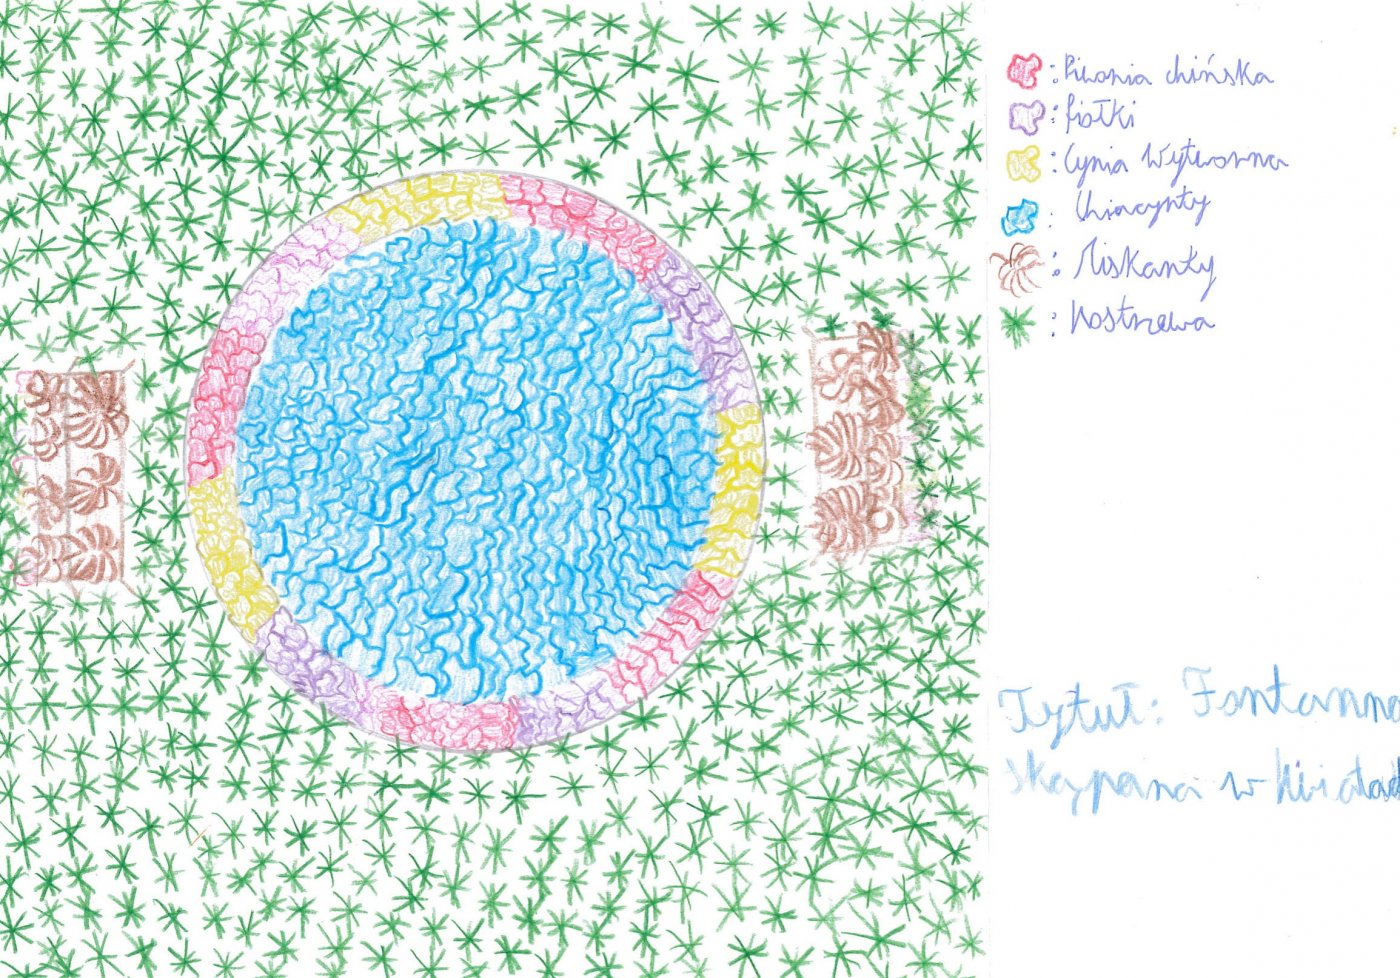 : Piwonia chińska
: fiołki
: Cynia Wytworna
: Chiacynty
: Miskanty
: Kostrzewa
Tytuł: Fontanna
skąpana w kwiatach